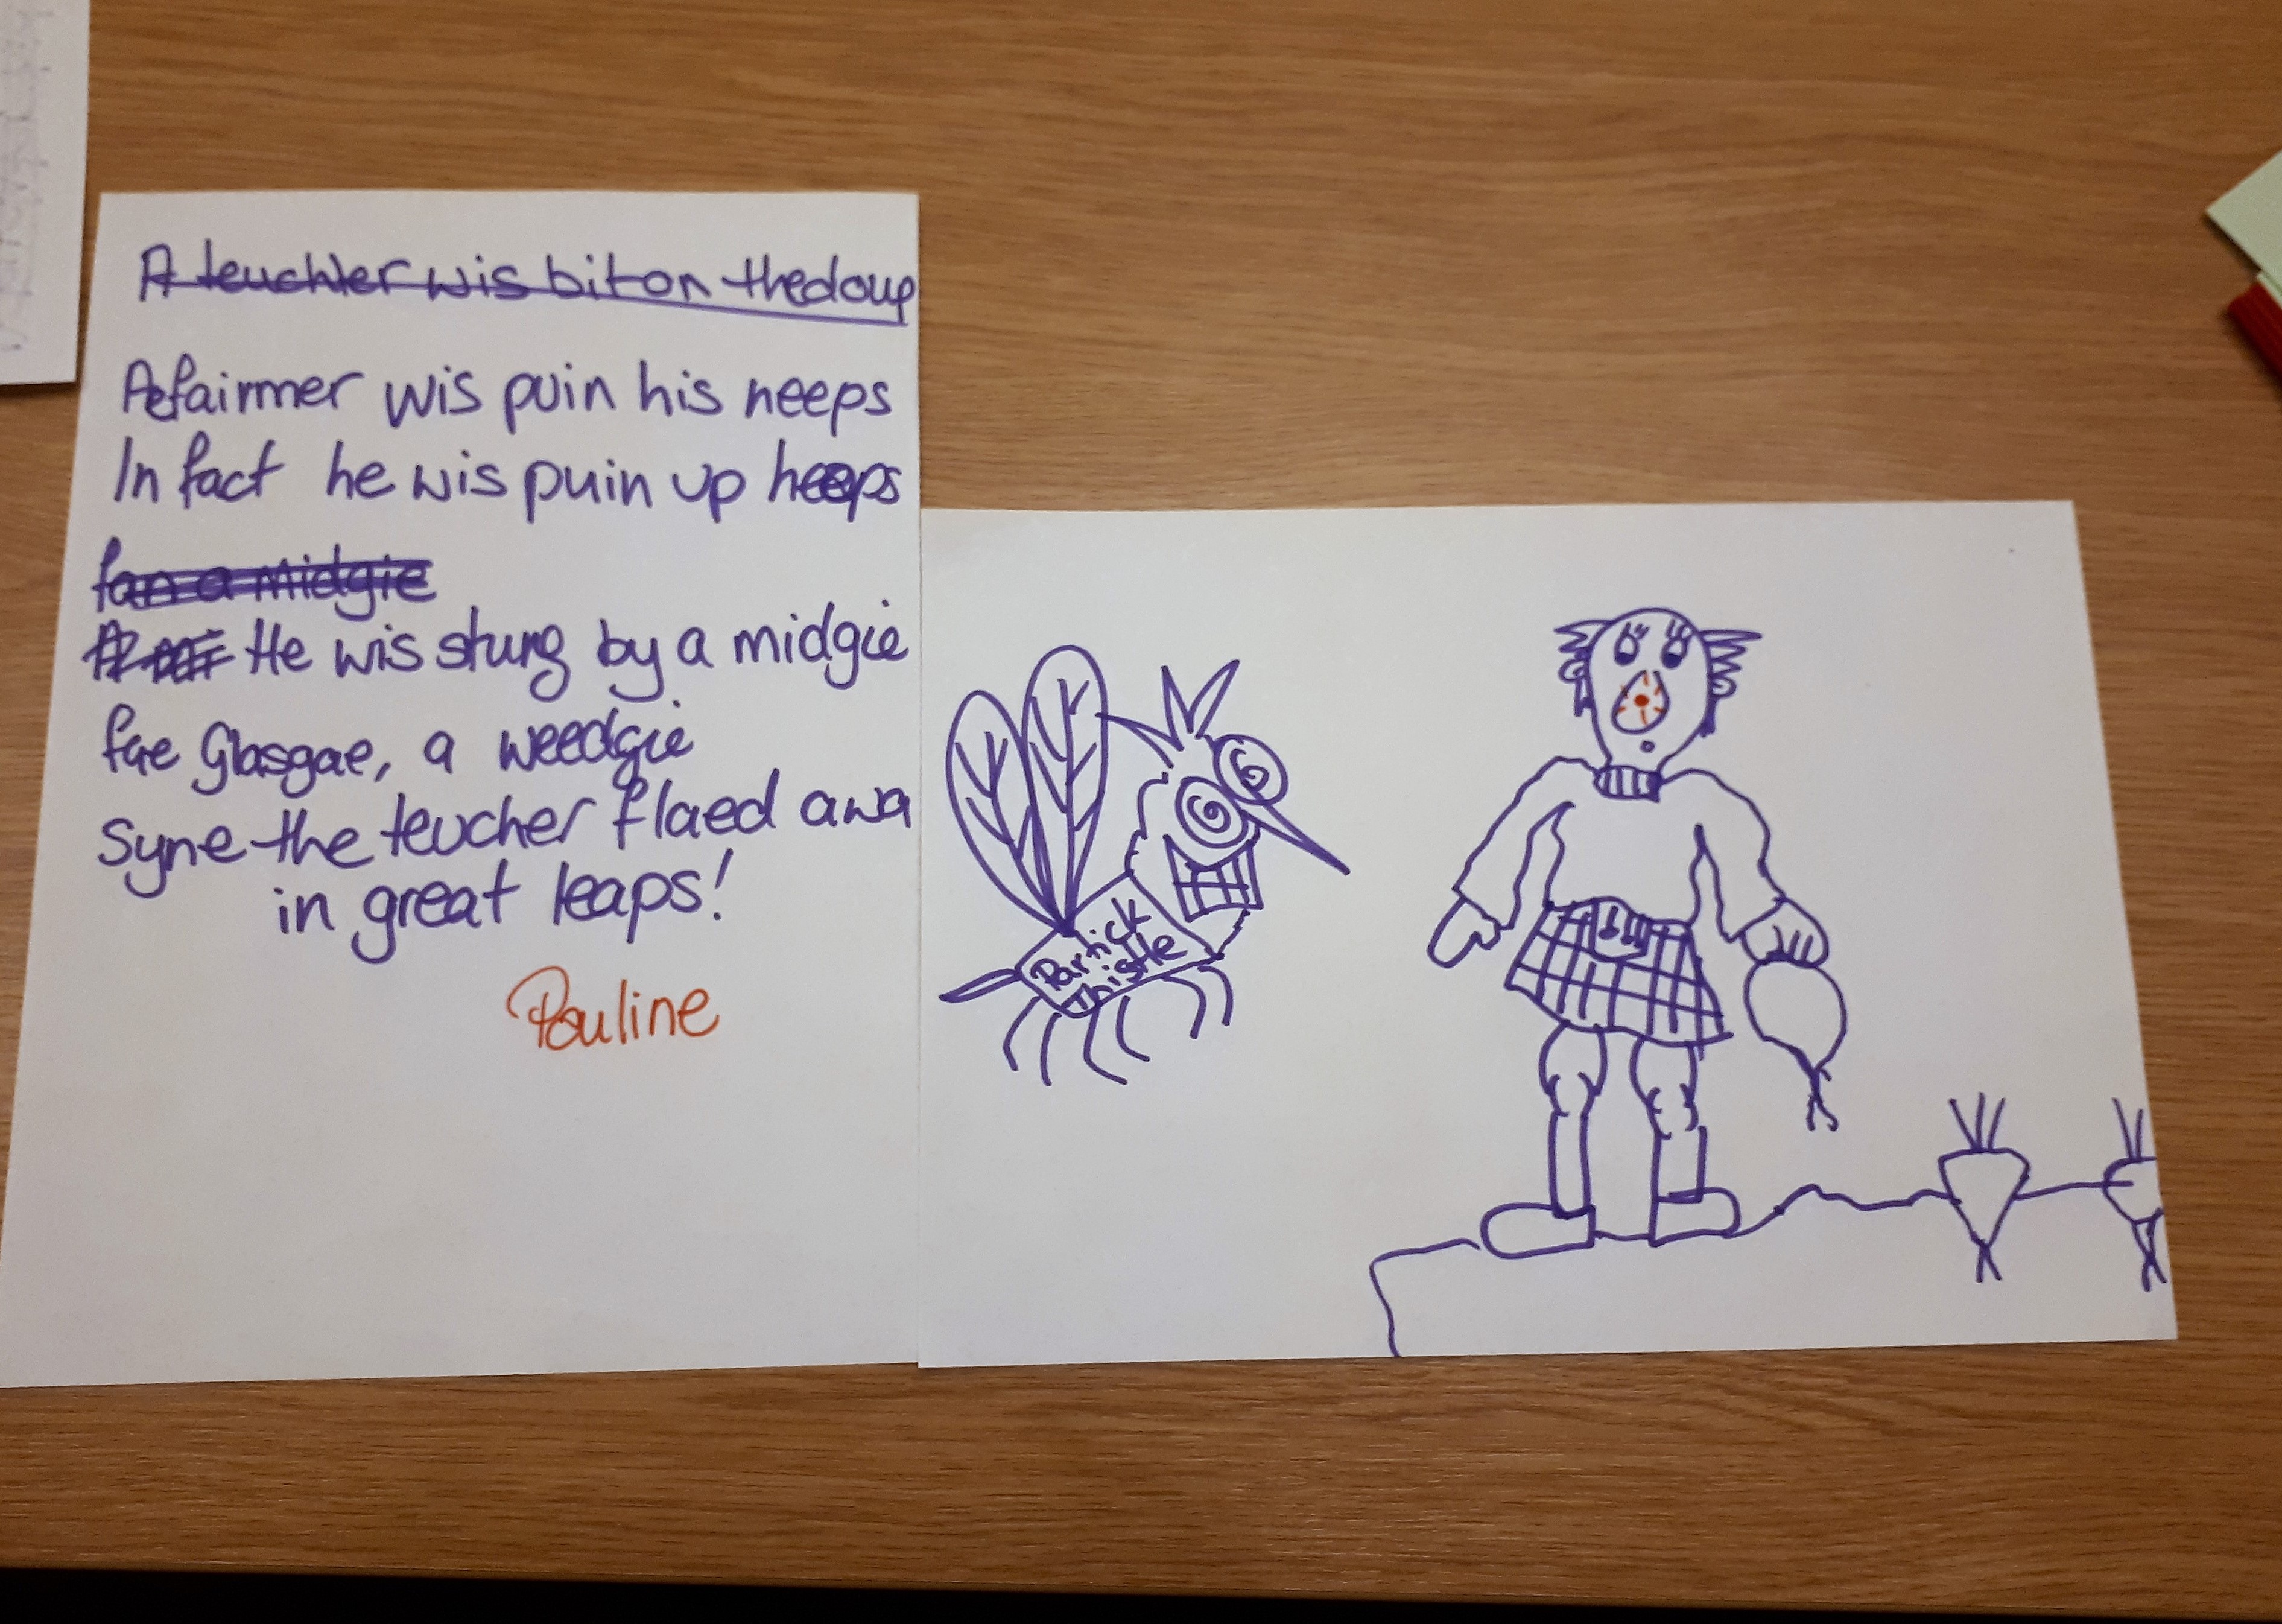 A teuchter wis bit on the doup
Ae fairmer wis puin his neeps
In fact he wis puin up heeps
fan a midgie
He wis stung by a midgie
fae Glasgae, a weedgie
Syne the teucher flaed awa
in great leaps!
Pauline
Partick
Thistle